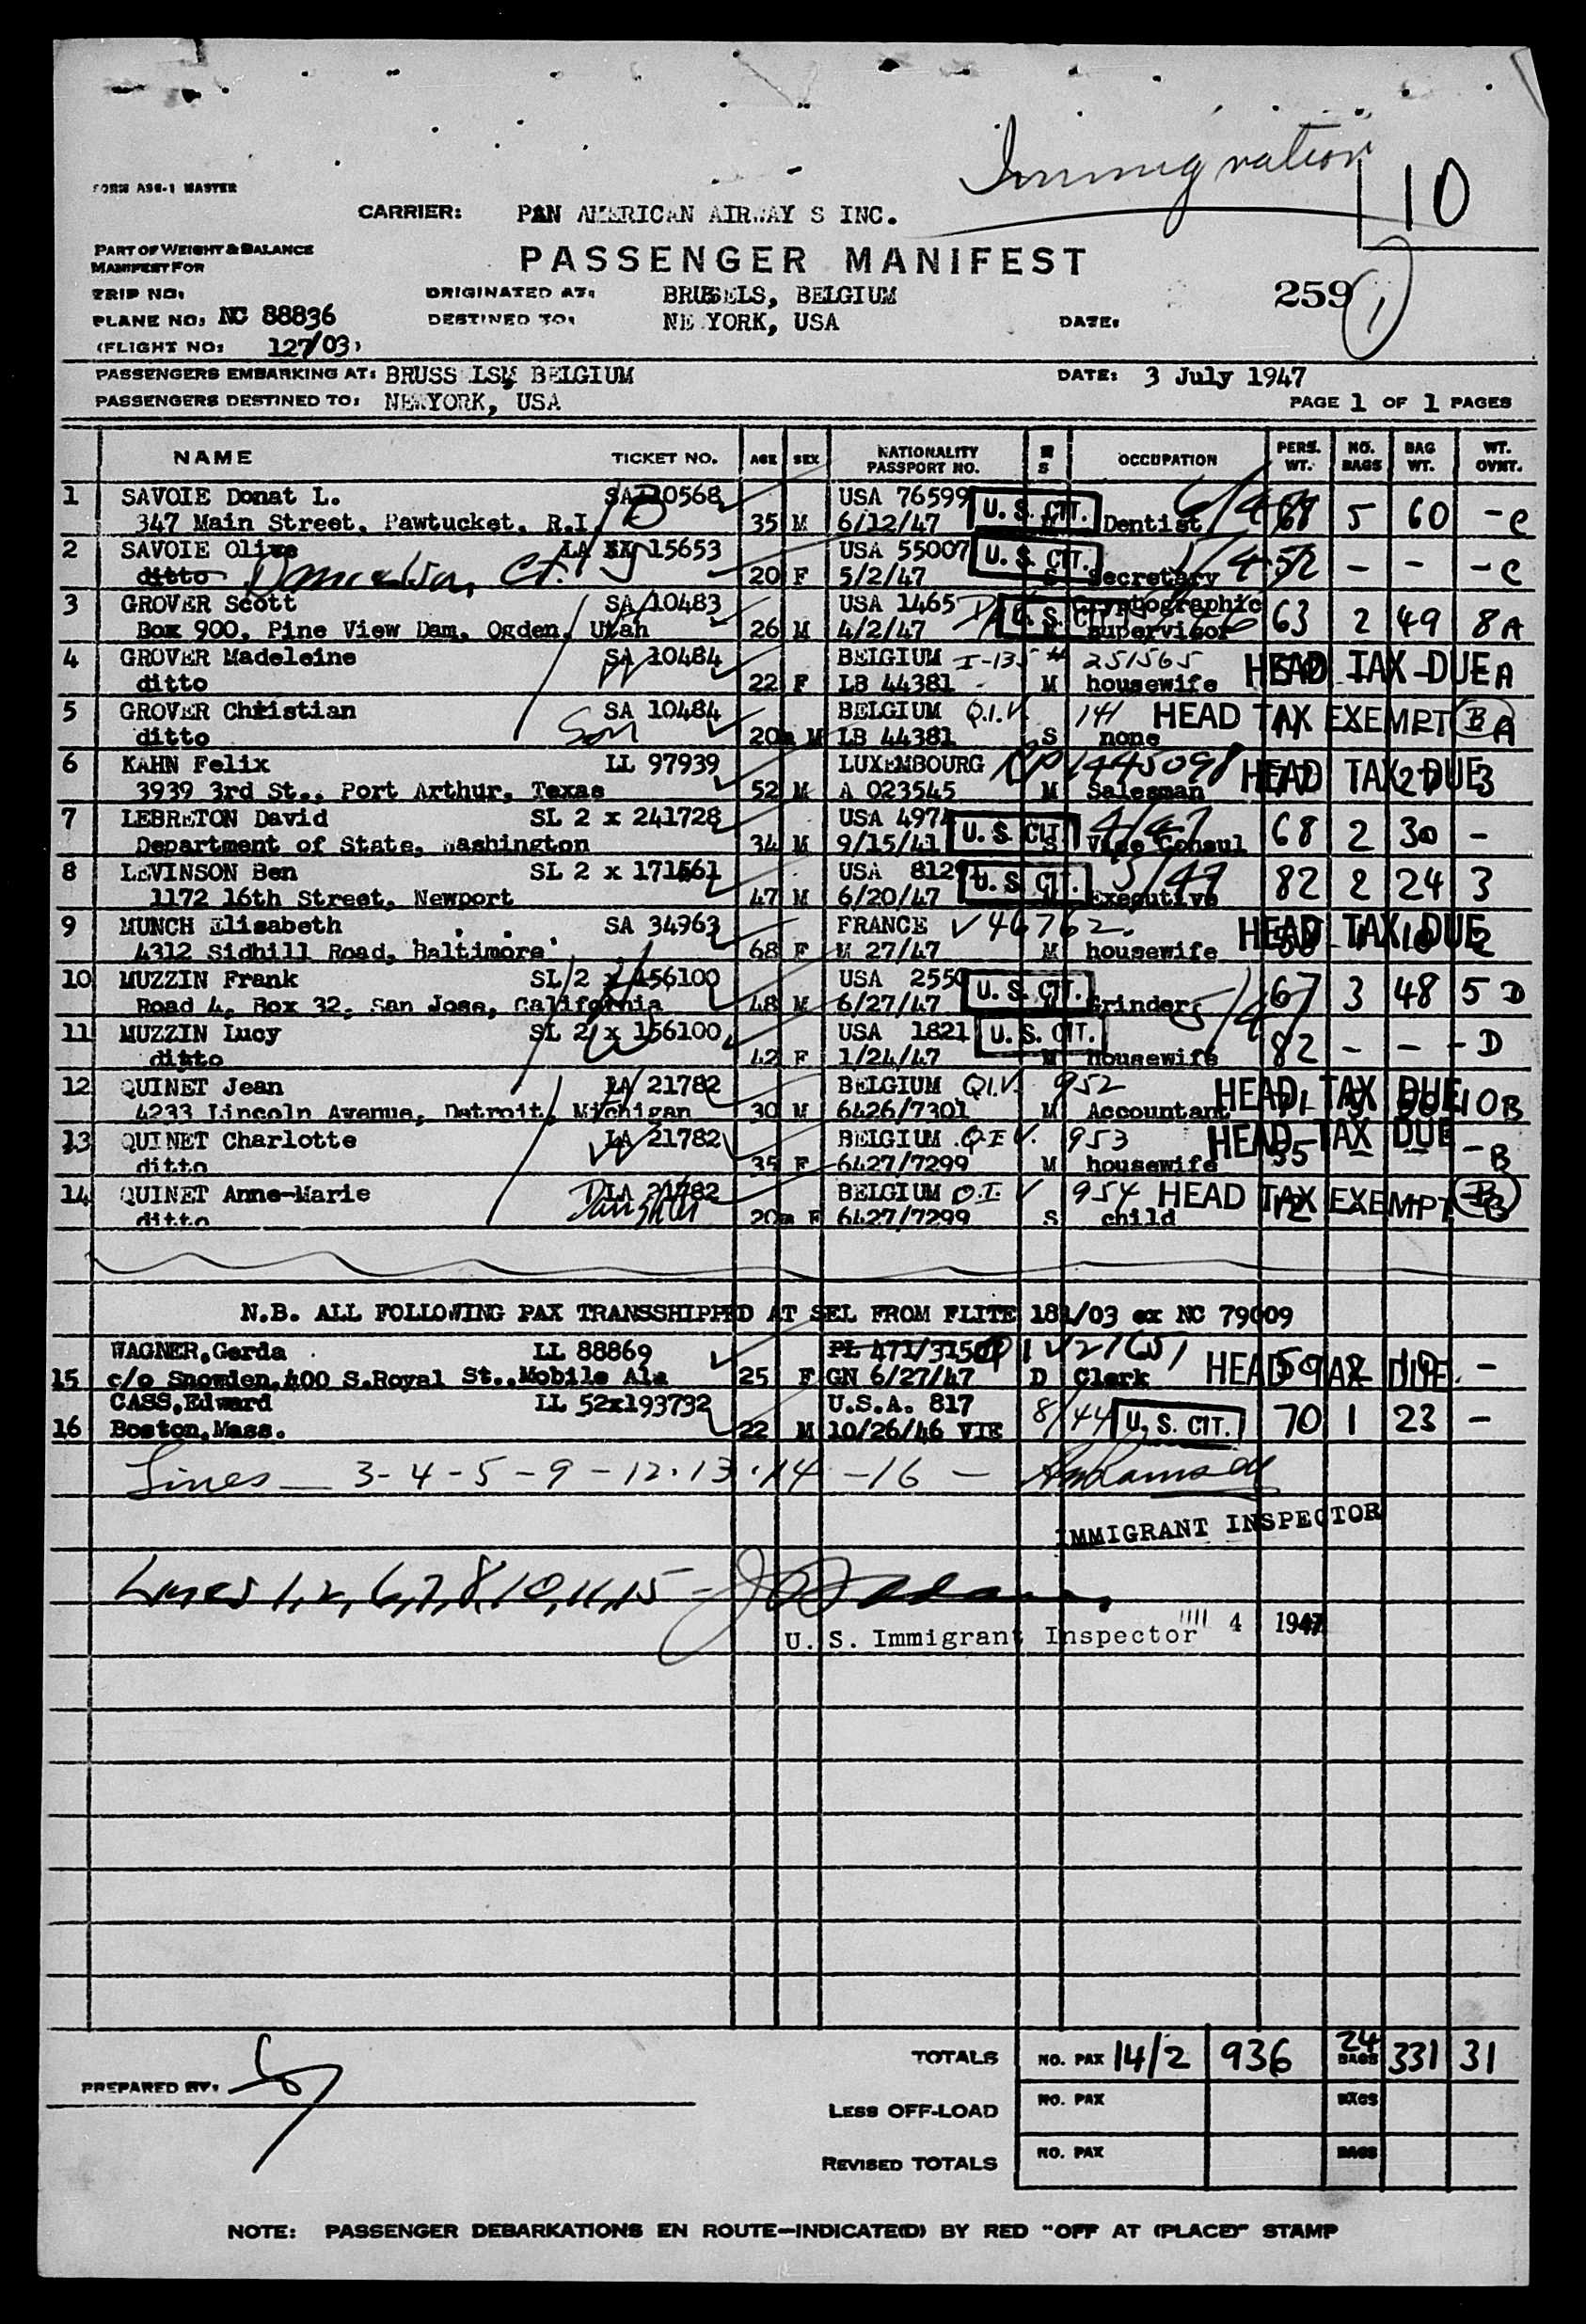 Immigration
10
FORM ASG-1 MASTER
CARRIER: PAN AMERICAN AIRWAY S INC.
PART OF WEIGHT & BALANCE
MANIFEST FOR
PASSENGER MANIFEST
TRIP NO:
ORIGINATED AT: BRUSSELS, BELGIUM
259 1
PLANE NO: NC 88836
DESTINED TO: NE YORK, USA
DATE:
(FLIGHT NO: 127/03)
PASSENGERS EMBARKING AT: BRUSS LS, BELGIUM
DATE: 3 July 1947
PASSENGERS DESTINED TO: NEWYORK, USA
PAGE 1 OF 1 PAGES
NAME TICKET NO. AGE SEX NATIONALITY PASSPORT NO. M S OCCUPATION PERS. WT. NO. BAGS BAG WT. WT. OVNT.
1 SAVOIE Donat L. SA 10568 USA 76599 U. S. CIT. 5 60 - C
347 Main Street, Pawtucket, R.I. 35 M 6/12/47 Dentist
2 SAVOIE Olive LA 15653 USA 55007 U. S. CIT. 52 - - - C
ditto Danielson, Ct. 20 F 5/2/47 S Secretary
3 GROVER Scott SA 10483 USA 1465 U. S. CIT. Cryptographic 63 2 49 8 A
Box 900, Pine View Dam, Ogden, Utah 26 M 4/2/47 supervisor
4 GROVER Madeleine SA 10484 BELGIUM I-135 # 251565 HEAD TAX DUE A
ditto 22 F LB 44381 M housewife
5 GROVER Christian SA 10484 BELGIUM Q.I.V. 141 HEAD TAX EXEMPT B A
ditto Son 20m M LB 44381 S none
6 KAHN Felix LL 97939 LUXEMBOURG RP 1445098 HEAD TAX DUE 3
3939 3rd St., Port Arthur, Texas 52 M A 023545 M Salesman
7 LEBRETON David SL 2 x 241728 USA 497 U. S. CIT 4/47 68 2 30 -
Department of State, Washington 34 M 9/15/41 S Vice Consul
8 LEVINSON Ben SL 2 x 171561 USA 812 U. S. CIT. 5/47 82 2 24 3
1172 16th Street, Newport 47 M 6/20/47 Executive
9 MUNCH Elisabeth SA 34963 FRANCE V 46762. HEAD TAX DUE 2
4312 Sidhill Road, Baltimore 68 F M 27/47 M housewife
10 MUZZIN Frank SL 2 x 156100 USA 2550 U. S. CIT. 5/47 67 3 48 5 D
Road 4, Box 32, San Jose, California 48 M 6/27/47 Grinder
11 MUZZIN Lucy SL 2 x 156100 USA 1821 U. S. CIT. 82 - - - D
ditto 42 F 1/24/47 M housewife
12 QUINET Jean LA 21782 BELGIUM Q.I.V. 952 HEAD TAX DUE 10 B
4233 Lincoln Avenue, Detroit, Michigan 30 M 6426/7301 M Accountant
13 QUINET Charlotte LA 21782 BELGIUM Q.I.V. 953 HEAD TAX DUE - B
ditto 35 F 6427/7299 M housewife 55
14 QUINET Anne-Marie LA 21782 BELGIUM Q.I. V 954 HEAD TAX EXEMPT B
ditto Daughter 20m F 6427/7299 S child
N.B. ALL FOLLOWING PAX TRANSSHIPPED AT SEL FROM FLITE 181/03 ex NC 79009
WAGNER, Gerda LL 88869 HEAD TAX DUE -
15 c/o Snowden, 400 S.Royal St., Mobile Ala 25 F GN 6/27/47 D Clerk
CASS, Edward LL 52x193732 U.S.A. 817 8/44 U. S. CIT. 70 1 23 -
16 Boston, Mass. 22 M 10/26/46 VIE
Lines — 3-4-5-9-12.13.14-16 —
IMMIGRANT INSPECTOR
Lines 1, 2, 6, 7, 8, 10, 11, 15 -
U. S. Immigrant Inspector 4 1947
TOTALS NO. PAX 14/2 936 24 BAGS 331 31
PREPARED BY:
LESS OFF-LOAD NO. PAX BAGS
REVISED TOTALS NO. PAX BAGS
NOTE: PASSENGER DEBARKATIONS EN ROUTE—INDICATE(D) BY RED "OFF AT (PLACE)" STAMP